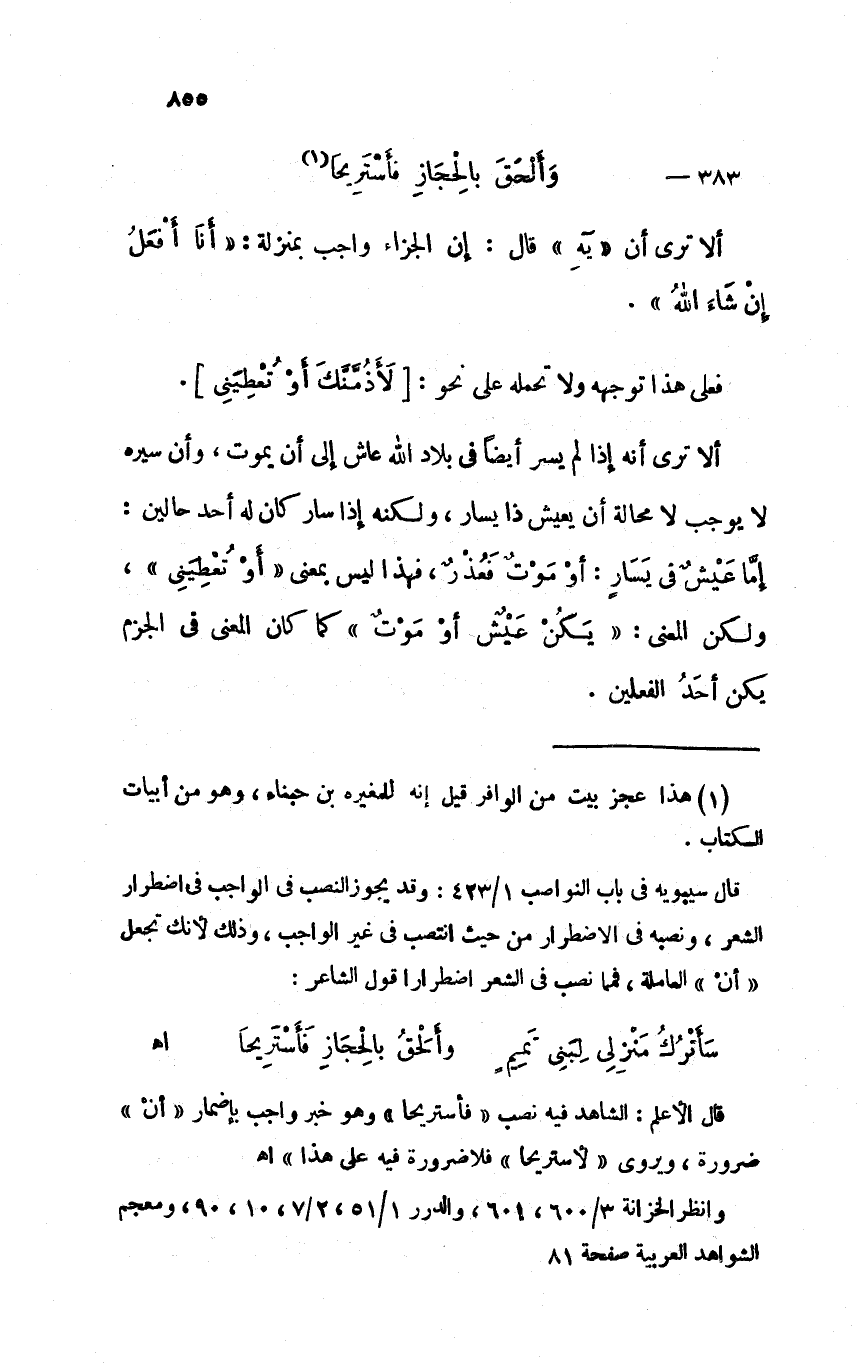 ٨٥٥
٣٨٣ — وَأَلْحَقَ بِالْحِجَازِ فأَسْتَرِيحَا(١)
ألا ترى أن « يَهِ » قال : إن الجزاء واجب بمنزلة : « أَنَا أَفْعَلُ
إِنْ شَاءَ اللهُ » .
فعلى هذا توجهه ولا تحمله على نحو : [ لَأَذُمَّنَّكَ أَوْ تُعْطِيَنِى ] .
ألا ترى أنه إذا لم يسر أيضاً فى بلاد الله عاش إلى أن يموت ، وأن سيره
لا يوجب لا محالة أن يعيش ذا يسار ، ولكنه إذا سار كان له أحد حالين :
إِمَّا عَيْشٌ فى يَسَارٍ : أوْ مَوْتٌ فَعُذْرٌ ، فهذا ليس بمعنى « أَوْ تُعْطِيَنِى » ،
ولكن المعنى : « يَكُنْ عَيْشٌ أوْ مَوْتٌ » كما كان المعنى فى الجزم
يكن أحَدُ الفعلين .
(١) هذا عجز بيت من الوافر قيل إنه للمغيره بن حبناء ، وهو من أبيات
الكتاب .
قال سيبويه فى باب النواصب ٤٢٣/١ : وقد يجوز النصب فى الواجب فى اضطرار
الشعر ، ونصبه فى الاضطرار من حيث انتصب فى غير الواجب ، وذلك لأنك تجعل
« أنْ » العاملة ، فما نصب فى الشعر اضطرارا قول الشاعر :
سَأَتْرُكُ مَنْزِلِى لِبَنِى تَمِيمٍ وأَلْحَقُ بِالْحِجَازِ فَأَسْتَرِيحَا اه
قال الأعلم : الشاهد فيه نصب « فأستريحا » وهو خبر واجب بإضمار « أنْ »
ضرورة ، ويروى « لأستريحا » فلا ضرورة فيه على هذا » اه
وانظر الخزانة ٦٠٠/٣ ، ٦٠١ ، والدرر ٥١/١ ، ٧/٢ ، ١٠ ، ٩٠ ، ومعجم
الشواهد العربية صفحة ٨١